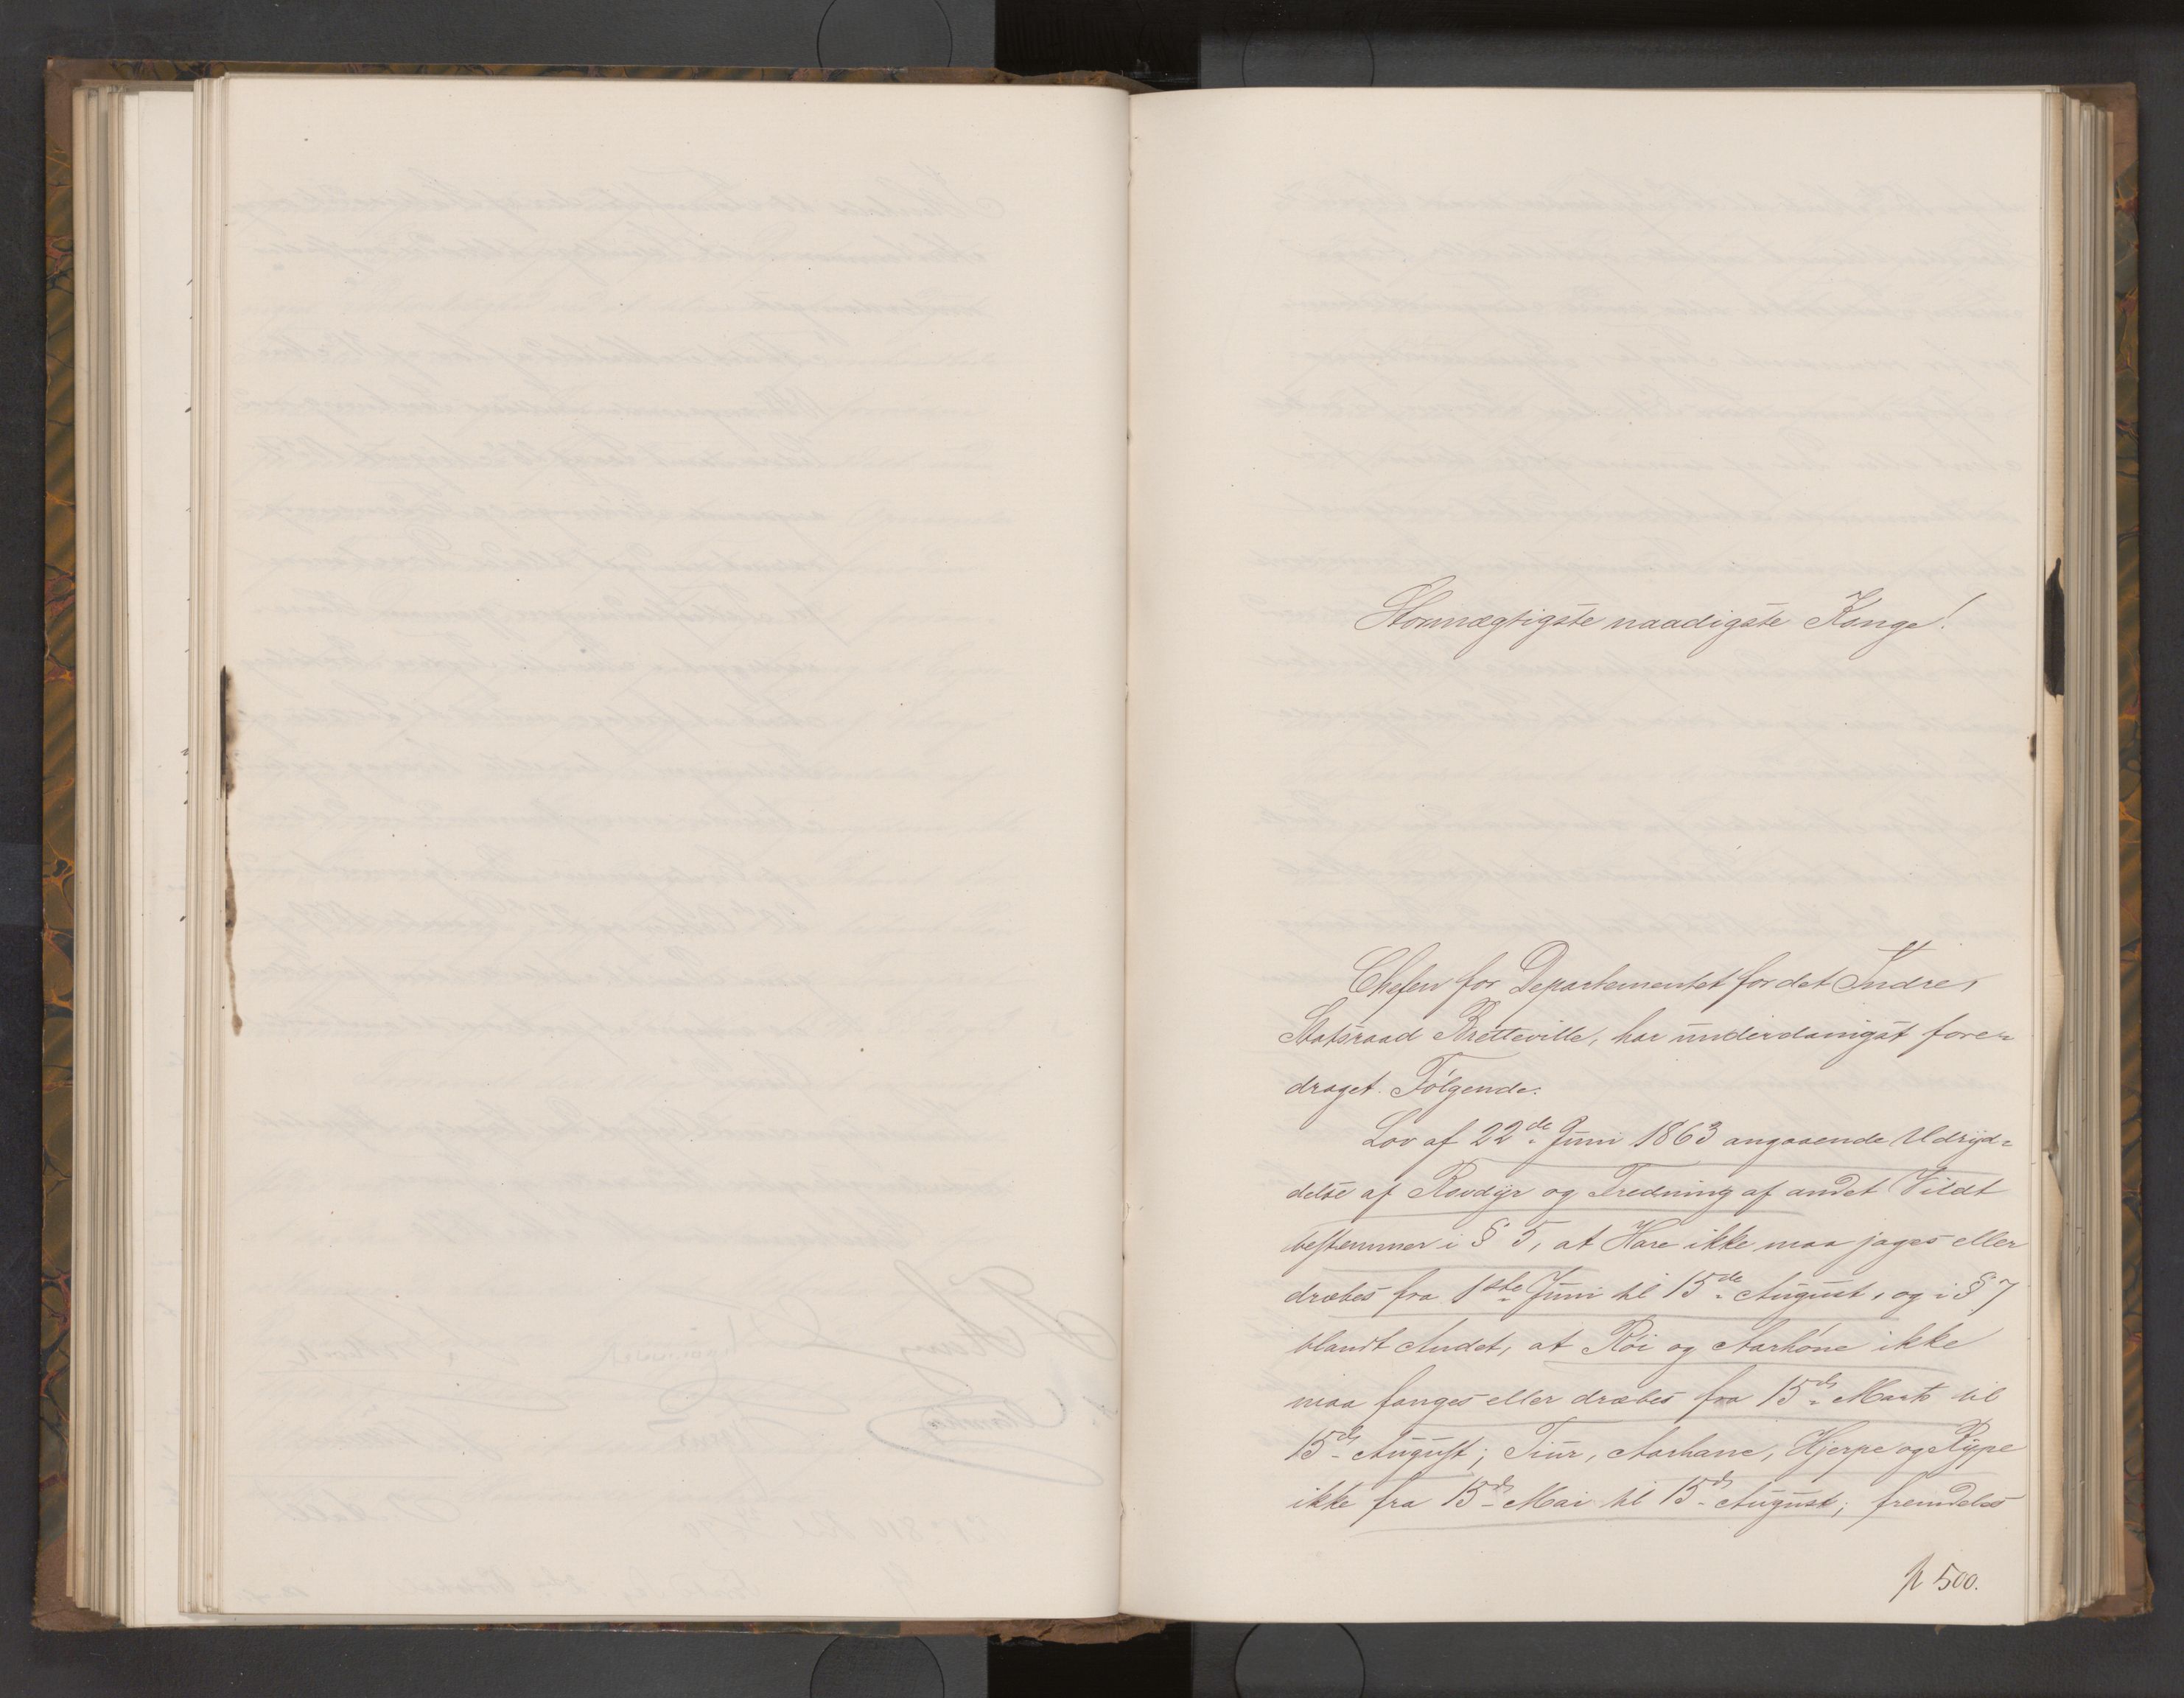 Stormægtigste naadigste Konge!
Chefen for Departementet for det Indre,
Statsraad Bretteville, har underdanigst fore-
draget Følgende:
Lov af 22de Juni 1863 angaaende Udryd-
delse af Rovdyr og Fredning af andet Vildt
bestemmer i § 5, at Hare ikke maa jages eller
dræbes fra 1ste Juni til 15de August, og i § 7
blandt Andet, at Røi og Aarhøne ikke
maa fanges eller dræbes fra 15de Marts til
15de August; Tiur, Aarhane, Hjerpe og Rype
ikke fra 15de Mai til 15de August; fremdeles
p 500.